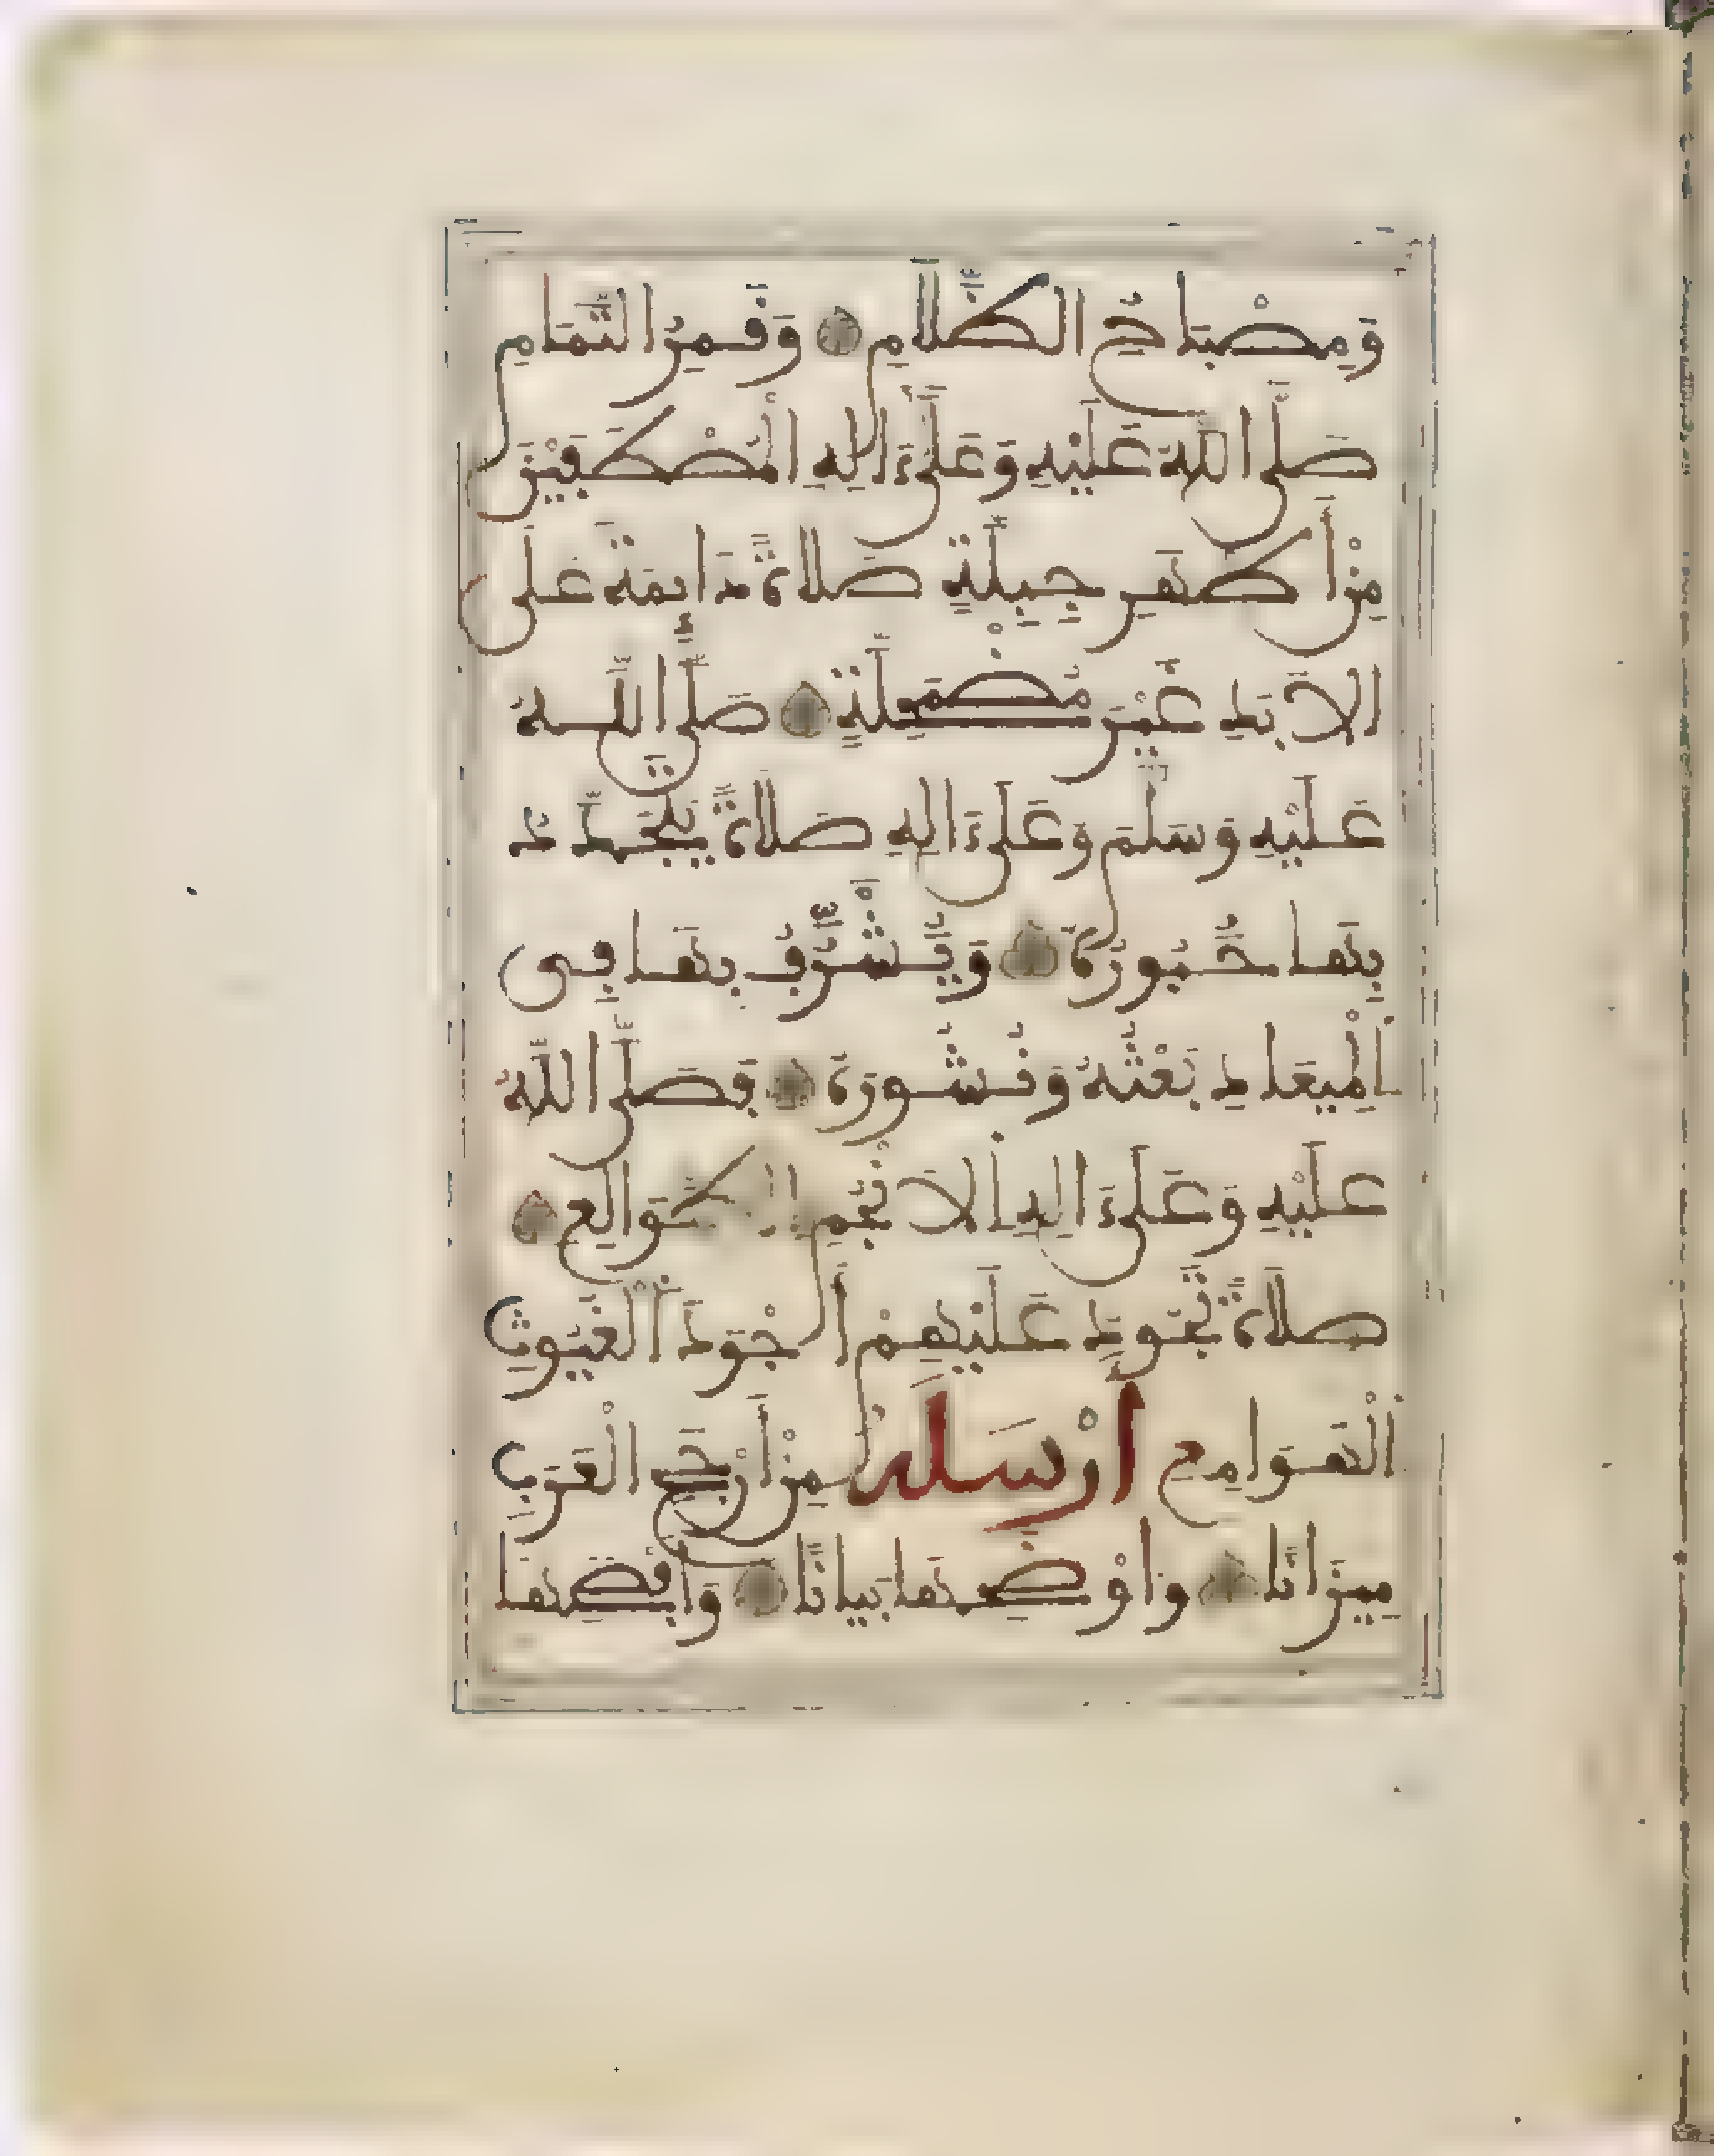 وَمِصْبَاحُ الظَّلَامِ وَقَمَرُ التَّمَامِ
صَلَّى اللهُ عَلَيْهِ وَعَلَىٰ ءَالِهِ الْمُصْطَفَيْنَ
مِنْ أَطْهَرِ جِبِلَّةٍ صَلَاةً دَايِمَةً عَلَى
الْأَبَدِ غَيْرَ مُضْمَحِلَّةٍ صَلَّى اللَّهُ
عَلَيْهِ وَسَلَّمَ وَعَلَىٰ ءَالِهِ صَلَاةً يَتَجَدَّدُ
بِهَا حُبُورُهُ وَيُشَرَّفُ بِهَا فِي
الْمِيعَادِ بَعْثُهُ وَنُشُورُهُ فَصَلَّى اللَّهُ
عَلَيْهِ وَعَلَىٰ ءَالِهِ الْأَنْجُمِ الطَّوَالِعِ
صَلَاةً تَجُودُ عَلَيْهِمْ أَجْوَدَ الْغُيُوثِ
الْهَوَامِعِ أَرْسَلَهُ مِنْ أَرْجَحِ الْعَرَبِ
مِيزَانًا وَأَوْضَحِهَا بَيَانًا وَأَفْصَحِهَا